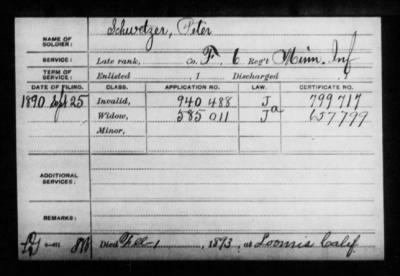 NAME OF SOLDIER: Schwotzer, Peter
SERVICE: Late rank, Co. F, 6 Reg't Minn. Inf
TERM OF SERVICE: Enlisted , 1 Discharged , 1
DATE OF FILING. CLASS. APPLICATION NO. LAW. CERTIFICATE NO.
1890 Sept 25 Invalid, 940 488 J 799 717
Widow, 585 011 Ja 657799
Minor,
ADDITIONAL SERVICES:
REMARKS:
Died Feb 1, 1893, at Loomis Calif